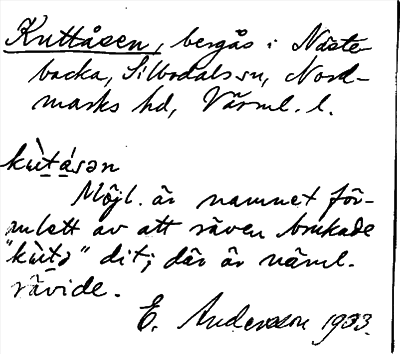 Kuttåsen, bergås i Näste-
backa, Silbodals sn, Nord-
marks hd, Värml. l.
kùtåsən
Möjl. är namnet för-
anlett av att räven brukade
"kùtə" dit; där är näml.
rävide.
E. Andersson 1933.